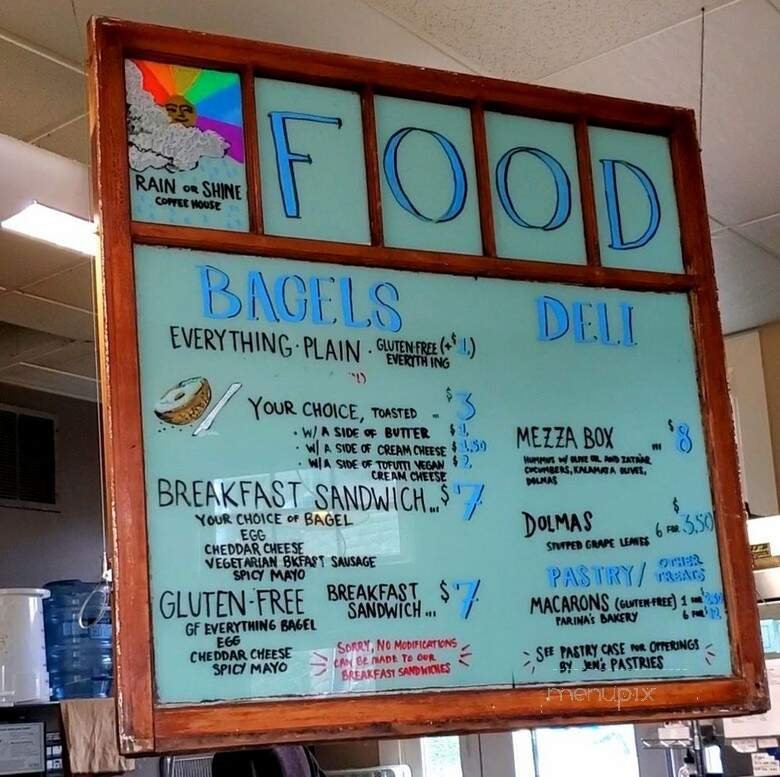 RAIN OR SHINE
COFFEE HOUSE
FOOD
BAGELS
EVERYTHING · PLAIN · GLUTEN-FREE (+$1.)
EVERYTHING
YOUR CHOICE, TOASTED .. $3
· W/ A SIDE OF BUTTER $1.
· W/ A SIDE OF CREAM CHEESE $1.50
· W/ A SIDE OF TOFUTTI VEGAN $2.
CREAM CHEESE
BREAKFAST SANDWICH... $7
YOUR CHOICE OF BAGEL
EGG
CHEDDAR CHEESE
VEGETARIAN BKFAST SAUSAGE
SPICY MAYO
GLUTEN-FREE BREAKFAST SANDWICH... $7
GF EVERYTHING BAGEL
EGG
CHEDDAR CHEESE
SPICY MAYO
SORRY, NO MODIFICATIONS
CAN BE MADE TO OUR
BREAKFAST SANDWICHES
DELI
MEZZA BOX ... $8
HUMMUS W/ OLIVE OIL AND ZATAAR
CUCUMBERS, KALAMATA OLIVES,
DOLMAS
DOLMAS 6 FOR $3.50
STUFFED GRAPE LEAVES
PASTRY/ OTHER TREATS
MACARONS (GLUTEN-FREE) 1 FOR
PARINA'S BAKERY 6 FOR $12
SEE PASTRY CASE FOR OFFERINGS
BY JEN'S PASTRIES
menupix